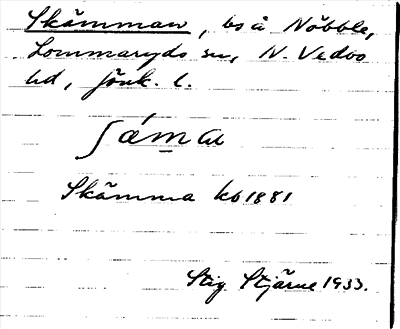 Skämman, bs å Nöbble,
Lommaryds sn, N. Vedbo
hd, Jönk. l.
ʃám̲a
Skämma kb 1881
Stig Stjärne 1933.